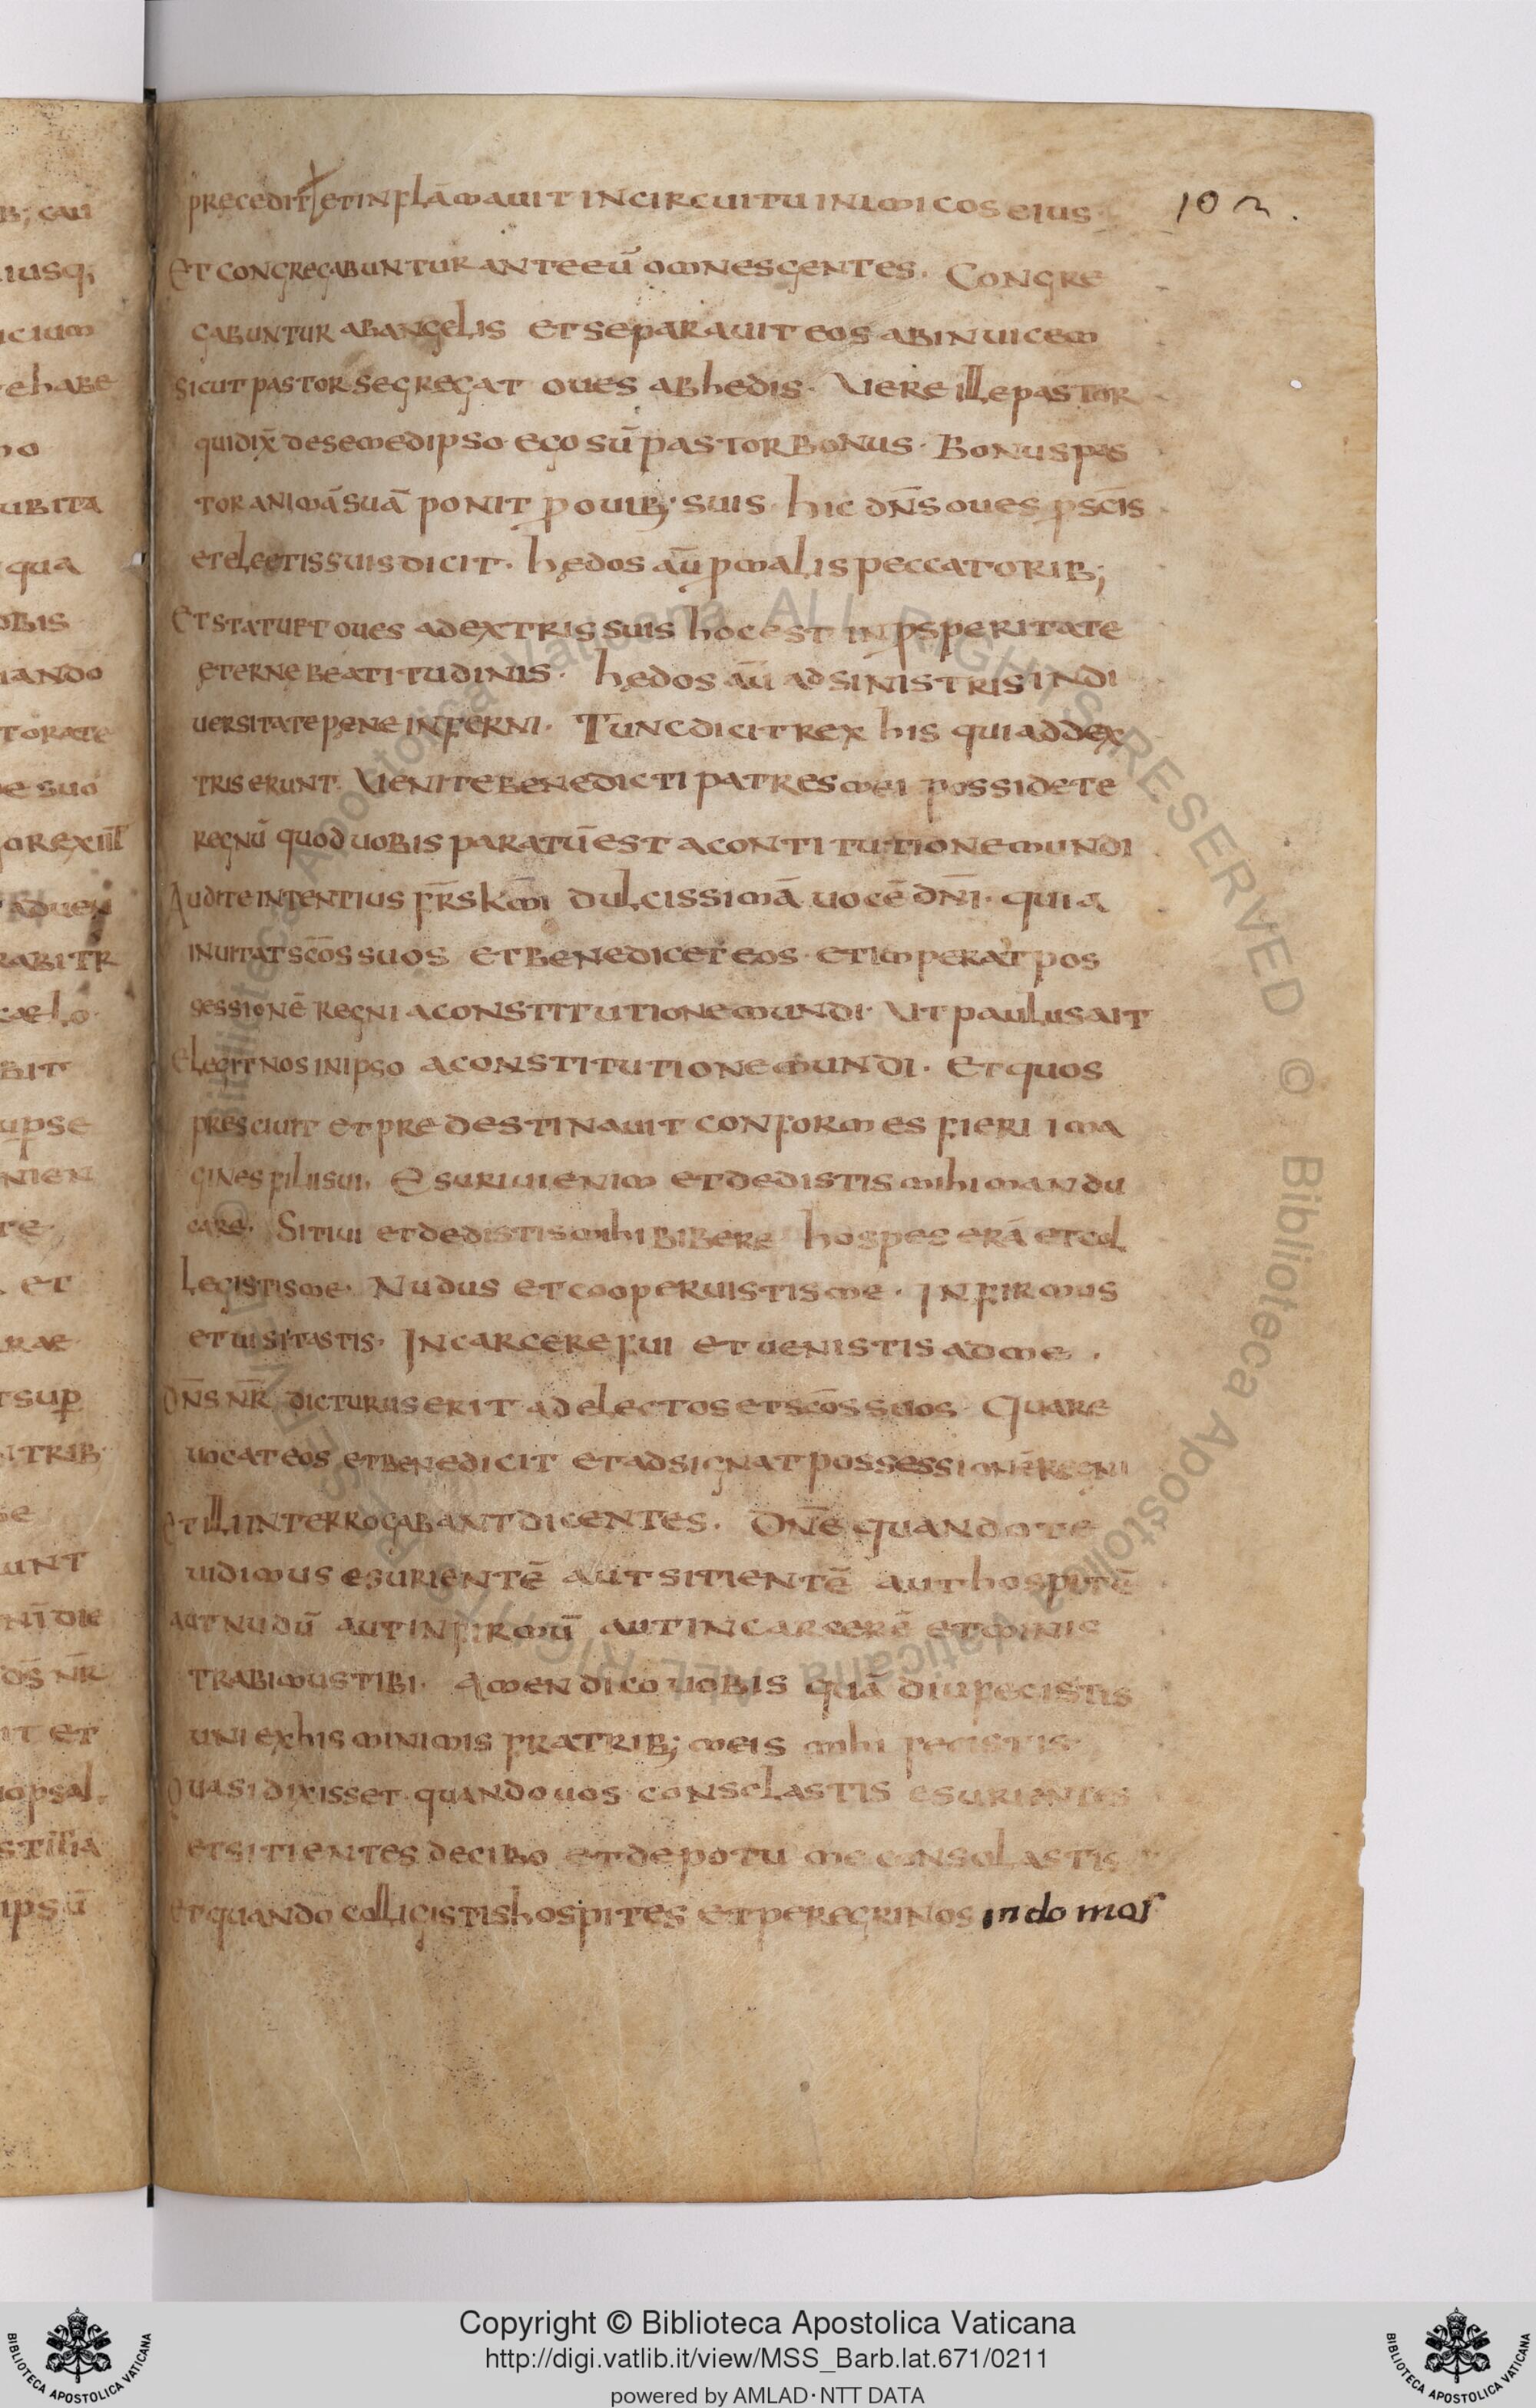 precedit et inflāmauit in circuitu inimicos eius
102.
Et congregabuntur ante eū omnes gentes. Congre
gabuntur ab angelis et separauit eos ab inuicem
sicut pastor segregat oues ab hedis. Uere ille pastor
qui dix̄ de semedipso ego sū pastor bonus. Bonus pas
tor animā suā ponit ꝓ ouib; suis. hic dn̄s oues ꝓ scīs
et electis suis dicit. hędos aū ꝓ malis peccatorib;
Et statuet oues a dextris suis hoc est in ꝓsperitate
ęterne beatitudinis. hędos aū ad sinistris in di
uersitate pene inferni. Tunc dicit rex his qui ad dex
tris erunt. Uenite benedicti patres mei possidete
regnū quod uobis paratū est a contitutione mundi
Audite intentius fr̄s km̄i dulcissimā uocē dn̄i. quia
inuitat scōs suos et benedicet eos. et imperat pos
sessionē regni a constitutione mundi. Ut paulus ait
elegit nos in ipso a constitutione mundi. Et quos
presciuit et predestinauit conformes fieri ima
gines filii sui. Esuriui enim et dedistis mihi mandu
care. Sitiui et dedistis mihi bibere hospes erā et col
legistis me. Nudus et cooperuistis me. Infirmus
et uisitastis. In carcere fui et uenistis ad me.
Dn̄s nr̄ dicturus erit ad electos et scōs suos. Quare
uocat eos et benedicit et adsignat possessionē regni
Et illi interrogabant dicentes. Dn̄e quando te
uidimus esurientē aut sitientē aut hospitē
aut nudū aut infirmū aut in carcerē et minis
trabimus tibi. Amen dico uobis quā diu fecistis
uni ex his minimis fratrib; meis mihi fecistis.
Quasi dixisset. quando uos consolastis esurientes
et sitientes de cibo et de potu me consolastis
et quando colligistis hospites et peregrinos in domos
Copyright © Biblioteca Apostolica Vaticana
http://digi.vatlib.it/view/MSS_Barb.lat.671/0211
powered by AMLAD·NTT DATA
BIBLIOTECA APOSTOLICA VATICANA
BIBLIOTECA APOSTOLICA VATICANA